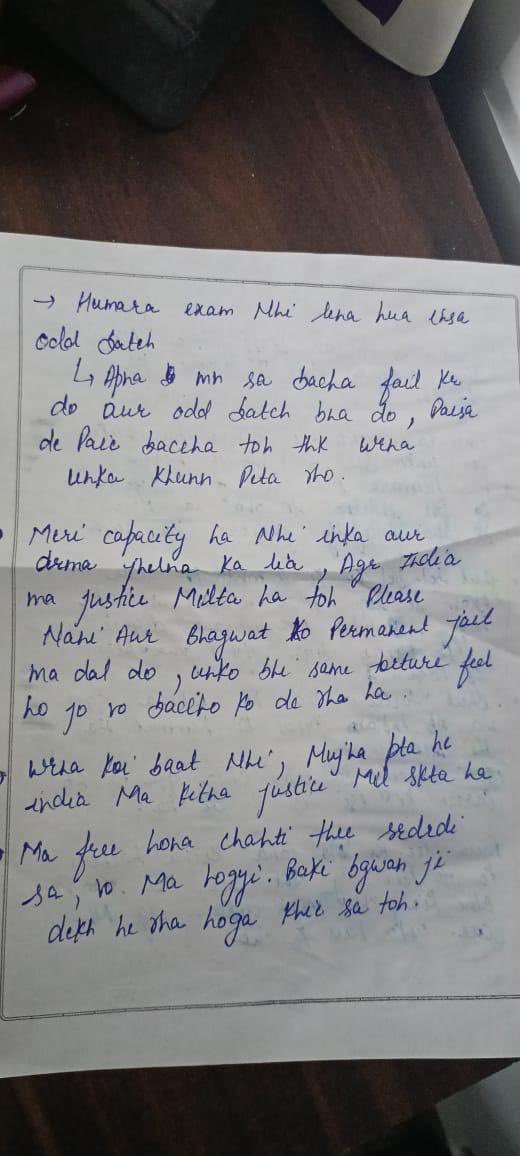 → Humara exam Nhi lena hua isa
odd batch
↳ Apna mn sa bacha fail kr
do aur odd batch bna do, Paisa
de Paie baccha toh thk wrna
unka Khunn Peta rho.
Meri capacity ha Nhi inka aur
drma jhelna Ka lia, Agr India
ma justice Milta ha toh Please
Nahi Aur Bhagwat Ko Permanent jail
ma dal do, unko bhi same torture feel
ho jo vo baccho ko de rha ha.
Wrna koi baat Nhi, Mujha pta he
india Ma kitna justice Mil skta ha
Ma free hona chahti thee
sa, vo Ma hogyi. Baki bgwan ji
dekh he rha hoga khi sa toh.